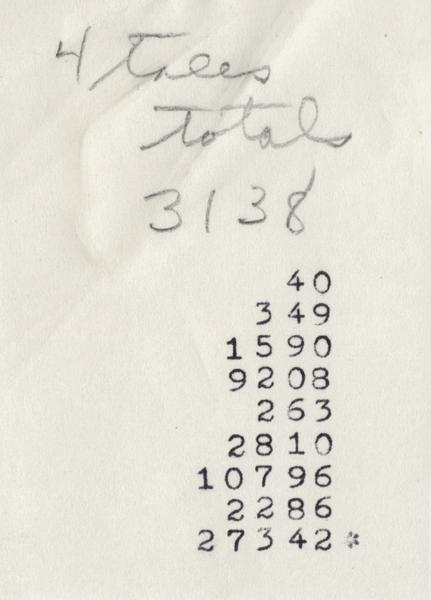 4
totals
3138
40
3 49
15 90
92 08
2 63
28 10
107 96
22 86
273 42 *